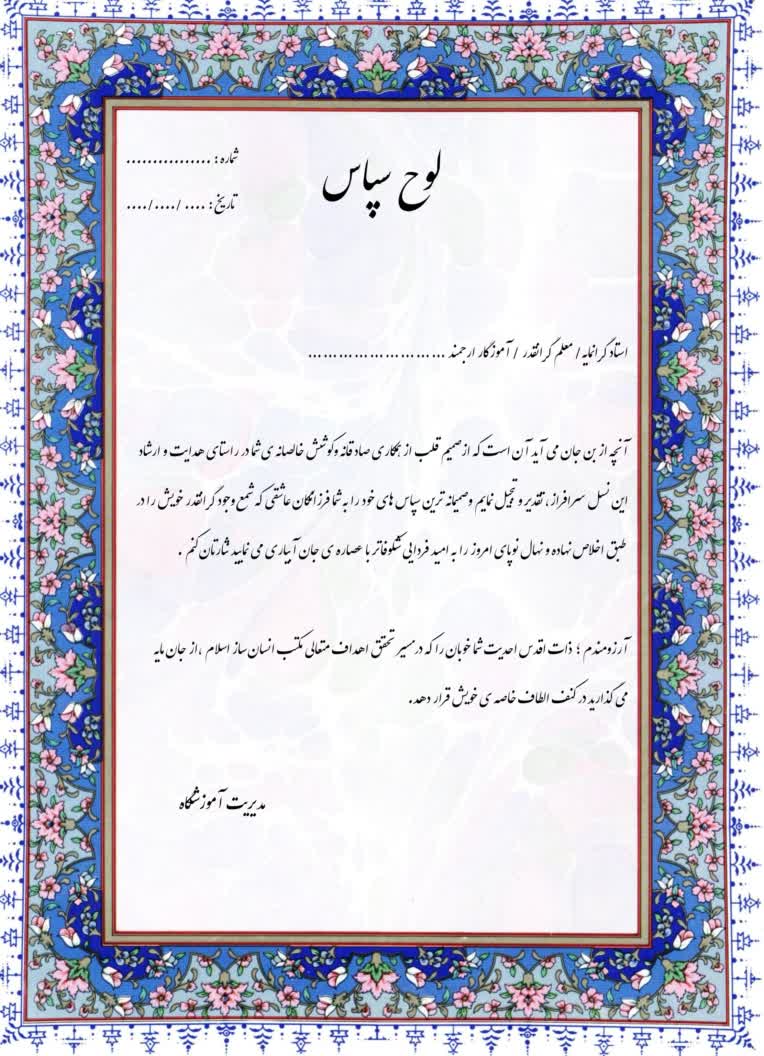 شماره: ................
لوح سپاس
تاریخ: .... /..../....
استاد گرانمایه / معلم گرانقدر / آموزگار ارجمند ..........................
آنچه از بن جان می آید آن است که از صمیم قلب از همکاری صادقانه وکوشش خالصانه ی شما در راستای هدایت و ارشاد
این نسل سرافراز ، تقدیر و تجلیل نمایم وصمیمانه ترین سپاس های خود را به شما فرزانگان عاشقی که شمع وجود گرانقدر خویش را در
طبق اخلاص نهاده و نهال نوپای امروز را به امید فردایی شکوفاتر با عصاره ی جان آبیاری می نمایید نثارتان کنم .
آرزومندم ؛ ذات اقدس احدیت شما خوبان را که در مسیر تحقق اهداف متعالی مکتب انسان ساز اسلام ،از جان مایه
می گذارید در کنف الطاف خاصه ی خویش قرار دهد.
مدیریت آموزشگاه